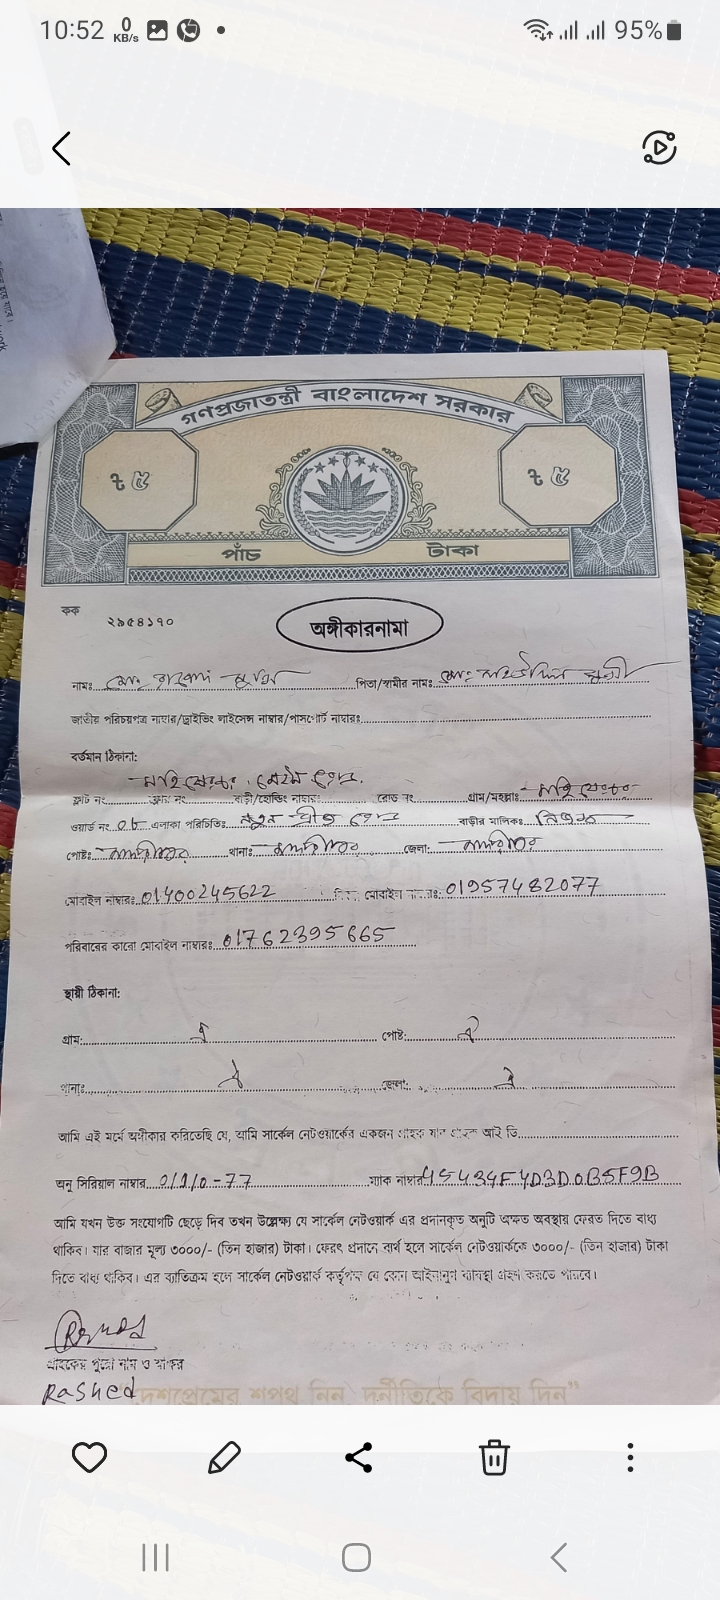 10:52 0 KB/s 95%
গণপ্রজাতন্ত্রী বাংলাদেশ সরকার
৳ ৫ ৳ ৫
পাঁচ টাকা
কক ২৯৫৪১৭০
অঙ্গীকারনামা
নামঃ মোঃ পিতা/স্বামীর নামঃ মোঃ
জাতীয় পরিচয়পত্র নাম্বার/ড্রাইভিং লাইসেন্স নাম্বার/পাসপোর্ট নাম্বারঃ
বর্তমান ঠিকানা:
ফ্লাট নং ফ্লোর নং বাড়ী/হোল্ডিং নাম্বারঃ রোড নং গ্রাম/মহল্লাঃ
ওয়ার্ড নং 06 এলাকা পরিচিতিঃ নতুন বাড়ীর মালিকঃ নিজস্ব
পোষ্টঃ মাদারীপুর থানাঃ মাদারীপুর জেলা: মাদারীপুর
মোবাইল নাম্বারঃ 01400245622 মোবাইল 01957482077
পরিবারের কারো মোবাইল নাম্বারঃ 01762395665
স্থায়ী ঠিকানা:
গ্রাম: ঐ পোষ্ট: ঐ
থানাঃ ঐ জেলা: ঐ
আমি এই মর্মে অঙ্গীকার করিতেছি যে, আমি সার্কেল নেটওয়ার্কের একজন গ্রাহক যার গ্রাহক আই ডি
অনু সিরিয়াল নাম্বার ম্যাক নাম্বার 45434F4D3D0B5F9B
আমি যখন উক্ত সংযোগটি ছেড়ে দিব তখন উল্লেক্ষ্য যে সার্কেল নেটওয়ার্ক এর প্রদানকৃত অনুটি অক্ষত অবস্থায় ফেরত দিতে বাধ্য
থাকিব। যার বাজার মূল্য ৩০০০/- (তিন হাজার) টাকা। ফেরৎ প্রদানে ব্যর্থ হলে সার্কেল নেটওয়ার্ককে ৩০০০/- (তিন হাজার) টাকা
দিতে বাধ্য থাকিব। এর ব্যতিক্রম হলে সার্কেল নেটওয়ার্ক কর্তৃপক্ষ যে কোন আইনানুগ ব্যবস্থা গ্রহণ করতে পারবে।
গ্রাহকের পুরো নাম ও স্বাক্ষর
Rashed
দেশপ্রেমের শপথ নিন দুর্নীতিকে বিদায় দিন"